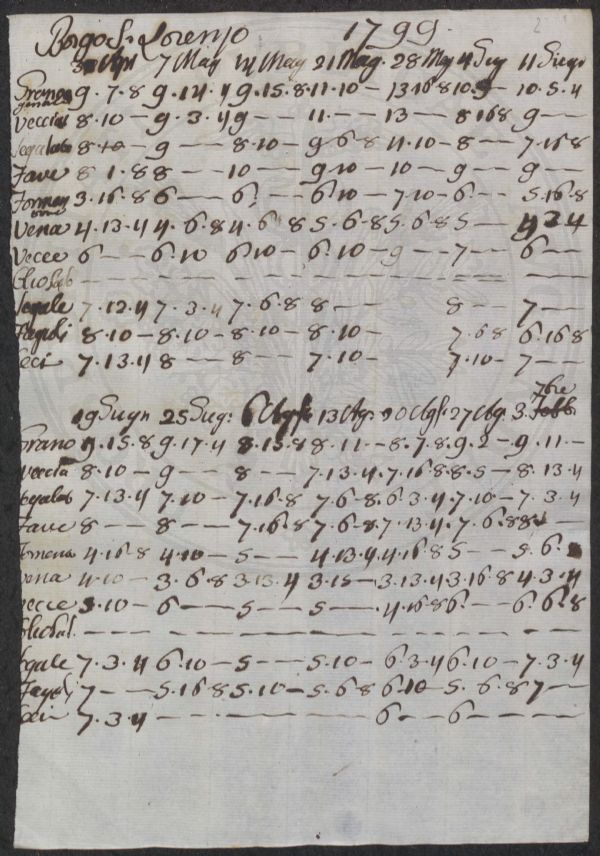 Borgo S. Lorenzo 1799
30 Apl 7 Mag 14 Mag 21 Mag. 28 Mag 4 Giug 11 Giugn
Grano 9.7.8 9.14.4 9.15.8 11.10- 13.16.8 10.5- 10.5.4
Veccia 8.10- 9.3.4 9-- 11.-- 13-- 8.16.8 9--
Segalato 8.10- 9-- 8.10- 9.6.8 11.10- 8-- 7.16.8
Fave 8.1.8 8-- 10-- 9.10- 10-- 9-- 9--
Formen 3.16.8 6-- 6.-- 6.10- 7.10- 6.-- 5.16.8
tone
Vena 4.13.4 4.6.8 4.6.8 5.6.8 5.6.8 5-- 4.3.4
Vecce 6-- 6.10 6.10- 6.10- 9-- 7-- 6--
Segale 7.12.4 7.3.4 7.6.8 8-- 8-- 7--
Fagioli 8.10- 8.10- 8.10- 8.10- 7.6.8 6.16.8
Ceci 7.13.4 8-- 8-- 7.10- 7.10- 7--
7bre
19 Giugn 25 Giug: 6 Agst 13 Ag. 20 Agst. 27 Ag. 3.
Grano 9.15.8 9.17.4 8.15.8 8.11- 8.7.8 9.2- 9.11-
Veccia 8.10- 9-- 8-- 7.13.4 7.16.8 8.5- 8.13.4
Segalat 7.13.4 7.10- 7.16.8 7.6.8 6.3.4 7.10- 7.3.4
Fave 8-- 8-- 7.16.8 7.6.8 7.13.4 7.6.8 8--
4.16.8 4.10- 5-- 4.13.4 4.16.8 5-- 5.6.8
Vena 4.10- 3.6.8 3.13.4 3.15- 3.13.4 3.16.8 4.3.4
Vecce 5.10- 6-- 5-- 5-- 4.16.8 6.-- 6.6.8
Segale 7.3.4 6.10- 5-- 5.10- 6.3.4 6.10- 7.3.4
Fagioli 7-- 5.16.8 5.10- 5.6.8 6.10- 5.6.8 7--
Ceci 7.3.4 -- -- -- 6-- 6-- --